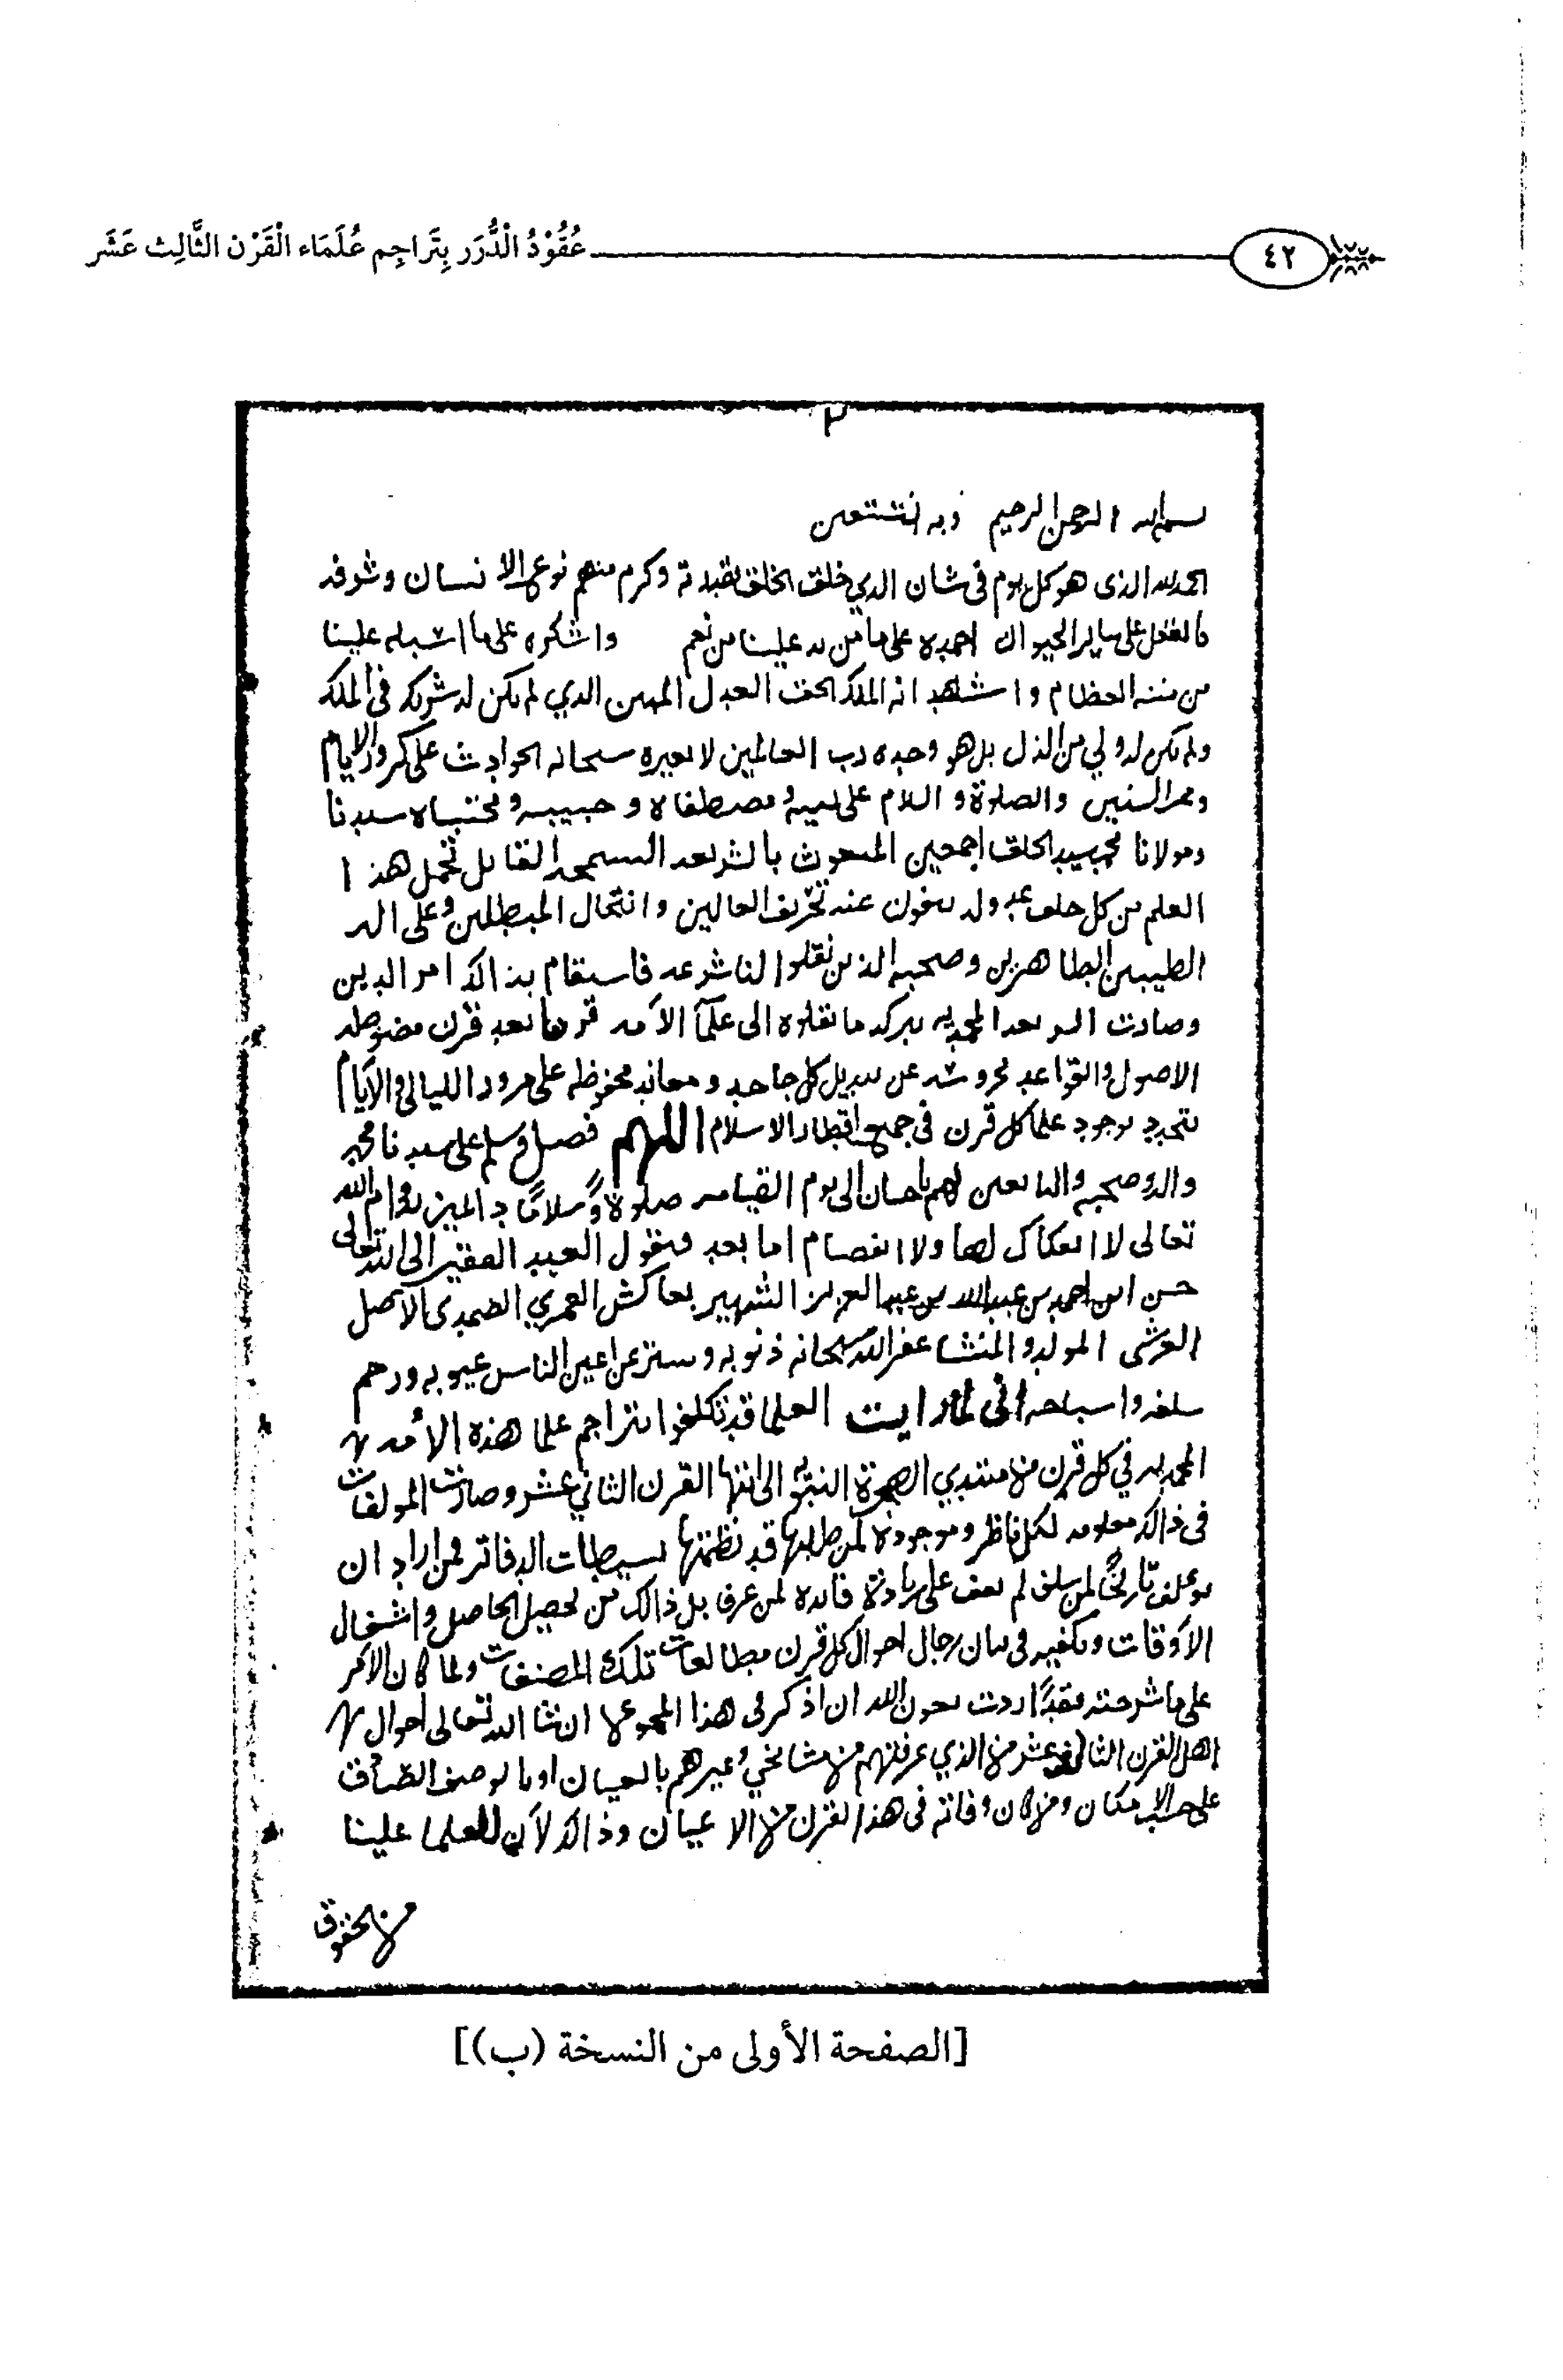 عُقُوْدُ الْدُّرَر بِتَرَاجِم عُلَمَاء الْقَرْن الثَّالِث عَشَر
٤٢
٢
بسم الله الرحمن الرحيم وبه نستعين
الحمد لله الذى هو كل يوم فى شان الذي خلق الخلق بقدرته وكرم منهم نوع الانسان وشرفه
بالعقل على ساير الحيوان احمده على ما من به علينا من نعم واشكره على ما اسبله علينا
من مننه العظام واشهد انه الملك الحق العدل المبين الذي لم يكن له شريك فى الملك
ولم يكن له ولي من الذل بل هو وحده رب العالمين لا يغيره سبحانه الحوادث على كرور الايام
وممر السنين والصلوة والسلام على نبيه ومصطفاه وحبيبه ومجتباه سيدنا
ومولانا محمد سيد الخلق اجمعين المبعوث بالشريعه السمحه القائل يحمل هذا
العلم من كل خلف عدوله ينفون عنه تحريف الغالين وانتحال المبطلين وعلى اله
الطيبين الطاهرين وصحبه الذين نقلوا لنا شرعه فاستقام بذالك امر الدين
وصارت الشريعه المحمديه ببركه ما نقلوه الى علمآ الأمه قرنا بعد قرن مضبوطه
الاصول والقواعد محروسه عن تبديل كل جاحد ومعاند محفوظه على مرور الليالى والأيام
بتجدد بوجود علما كل قرن فى جميع اقطار الاسلام اللهم فصل وسلم على سيدنا محمد
واله وصحبه والتابعين لهم باحسان الى يوم القيامه صلوة وسلامًا دائمين بدوام الله
تعالى لا انفكاك لها ولا انفصام اما بعد فيقول العبد الفقير الى الله تعالى
حسن ابن احمد بن عبد الله بن عبد العزيز الشهير بعاكش العمري الضمدى الاصل
العرشى المولد والمنشا غفر الله سبحانه ذنوبه وستر عن اعين الناس عيوبه ورحم
سلفه واسباطه انى لما رايت العلما قد تكلفوا بتراجم علما هذه الأمه
المحمديه في كل قرن من مبتدي الهجرة النبويه الى انتها القرن الثاني عشر وصارت المولفات
فى ذالك معلومه لكل ناظر وموجودة لمن طلبها قد نظمتها بسيطات الدفاتر فمن اراد ان
يولف تاريخًا لمن سلف لم يقف على زيادة فايده لمن عرف بل ذالك من تحصيل الحاصل واشتغال
الأوقات ويكفيه فى بيان رجال احوال كل قرن مطالعات تلك المصنفات ولما كان الامر
على ما شرحته مقيدًا اردت بعون الله ان اذكر فى هذا المجموع ان شا الله تعالى احوال
اهل القرن الثالث عشر من الذي عرفتهم من مشائخي وغيرهم بالعيان او بالوصف الصادق
على حسب الامكان ومن كان وفاته فى هذا القرن من الاعيان وذالك لأن للعلما علينا
من الحقوق
[الصفحة الأولى من النسخة (ب)]